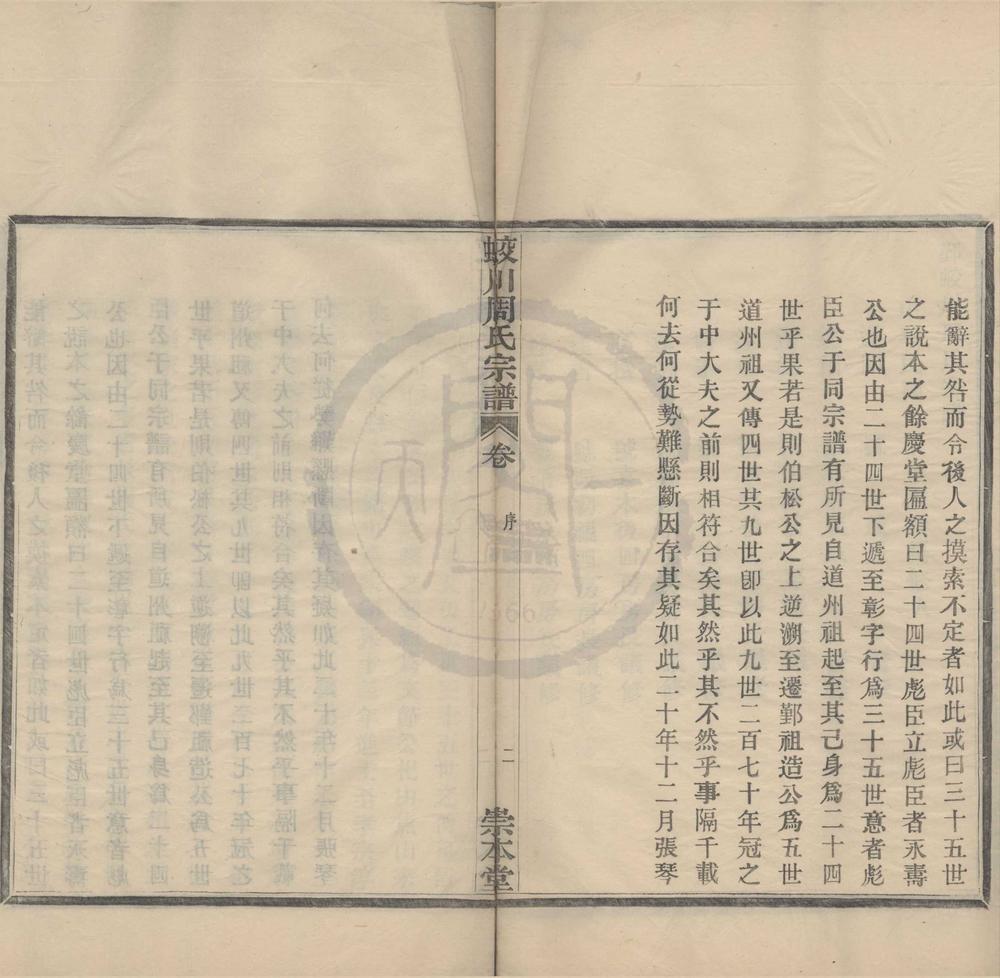 能辭其咎而令後人之摸索不定者如此或曰三十五世
之說本之餘慶堂匾額曰二十四世彪臣立彪臣者永壽
公也因由二十四世下遞至彰字行爲三十五世意者彪
臣公于同宗譜有所見自道州祖起至其己身爲二十四
世乎果若是則伯松公之上逆溯至遷鄞祖造公爲五世
道州祖又傳四世其九世卽以此九世二百七十年冠之
于中大夫之前則相符合矣其然乎其不然乎事隔千載
何去何從勢難懸斷因存其疑如此二十年十二月張琴
蛟川周氏宗譜
卷
序
二
崇本堂